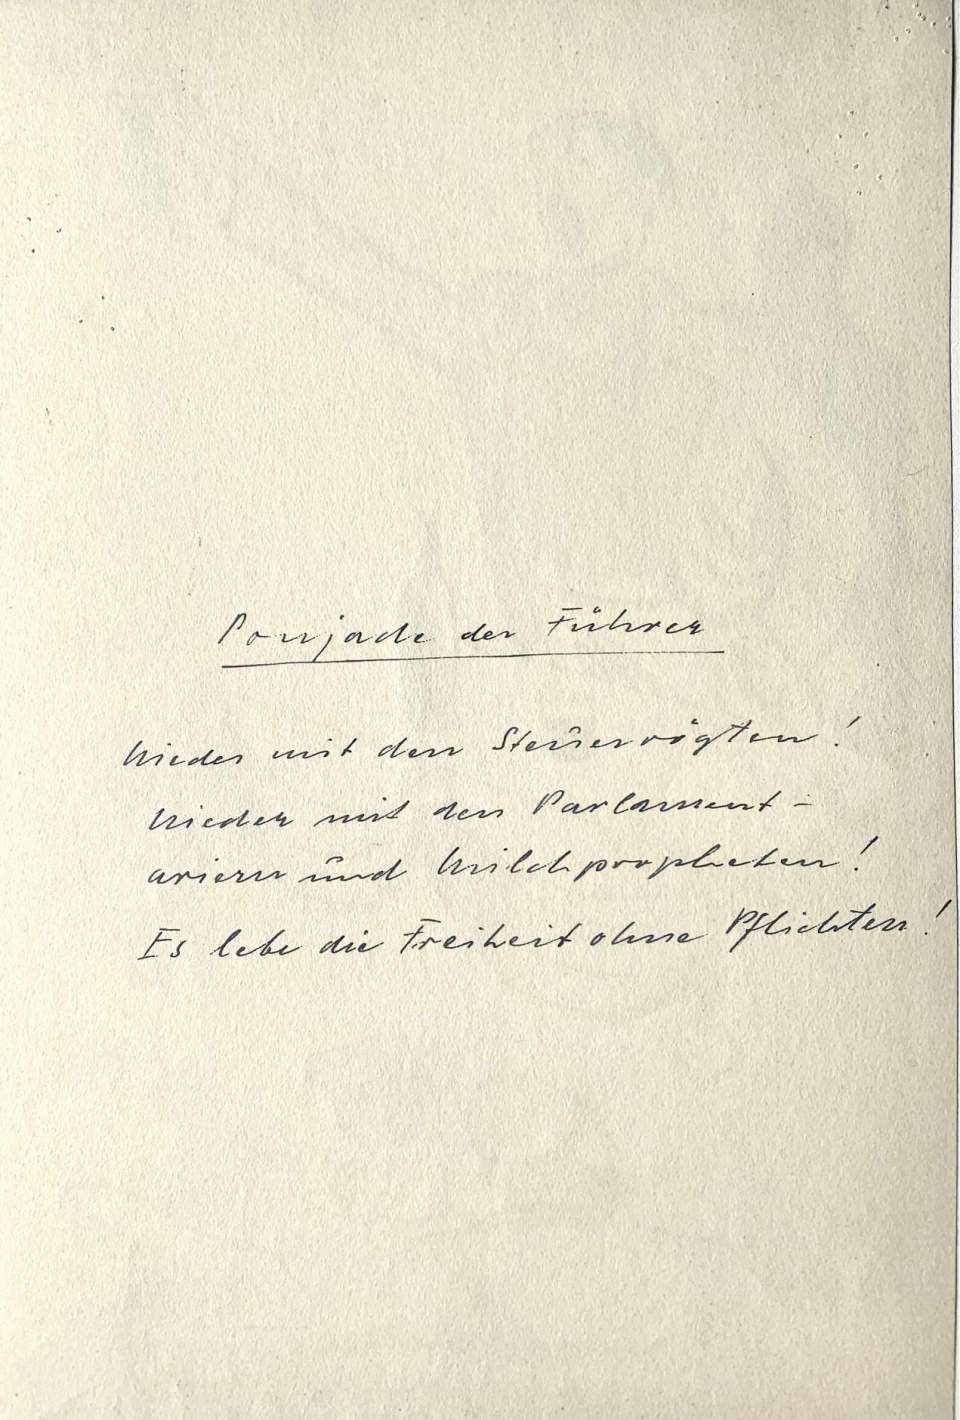 Poujade der Führer
Nieder mit den Steuervögten!
Nieder mit den Parlament-
ariern und Milchpropheten!
Es lebe die Freiheit ohne Pflichten!